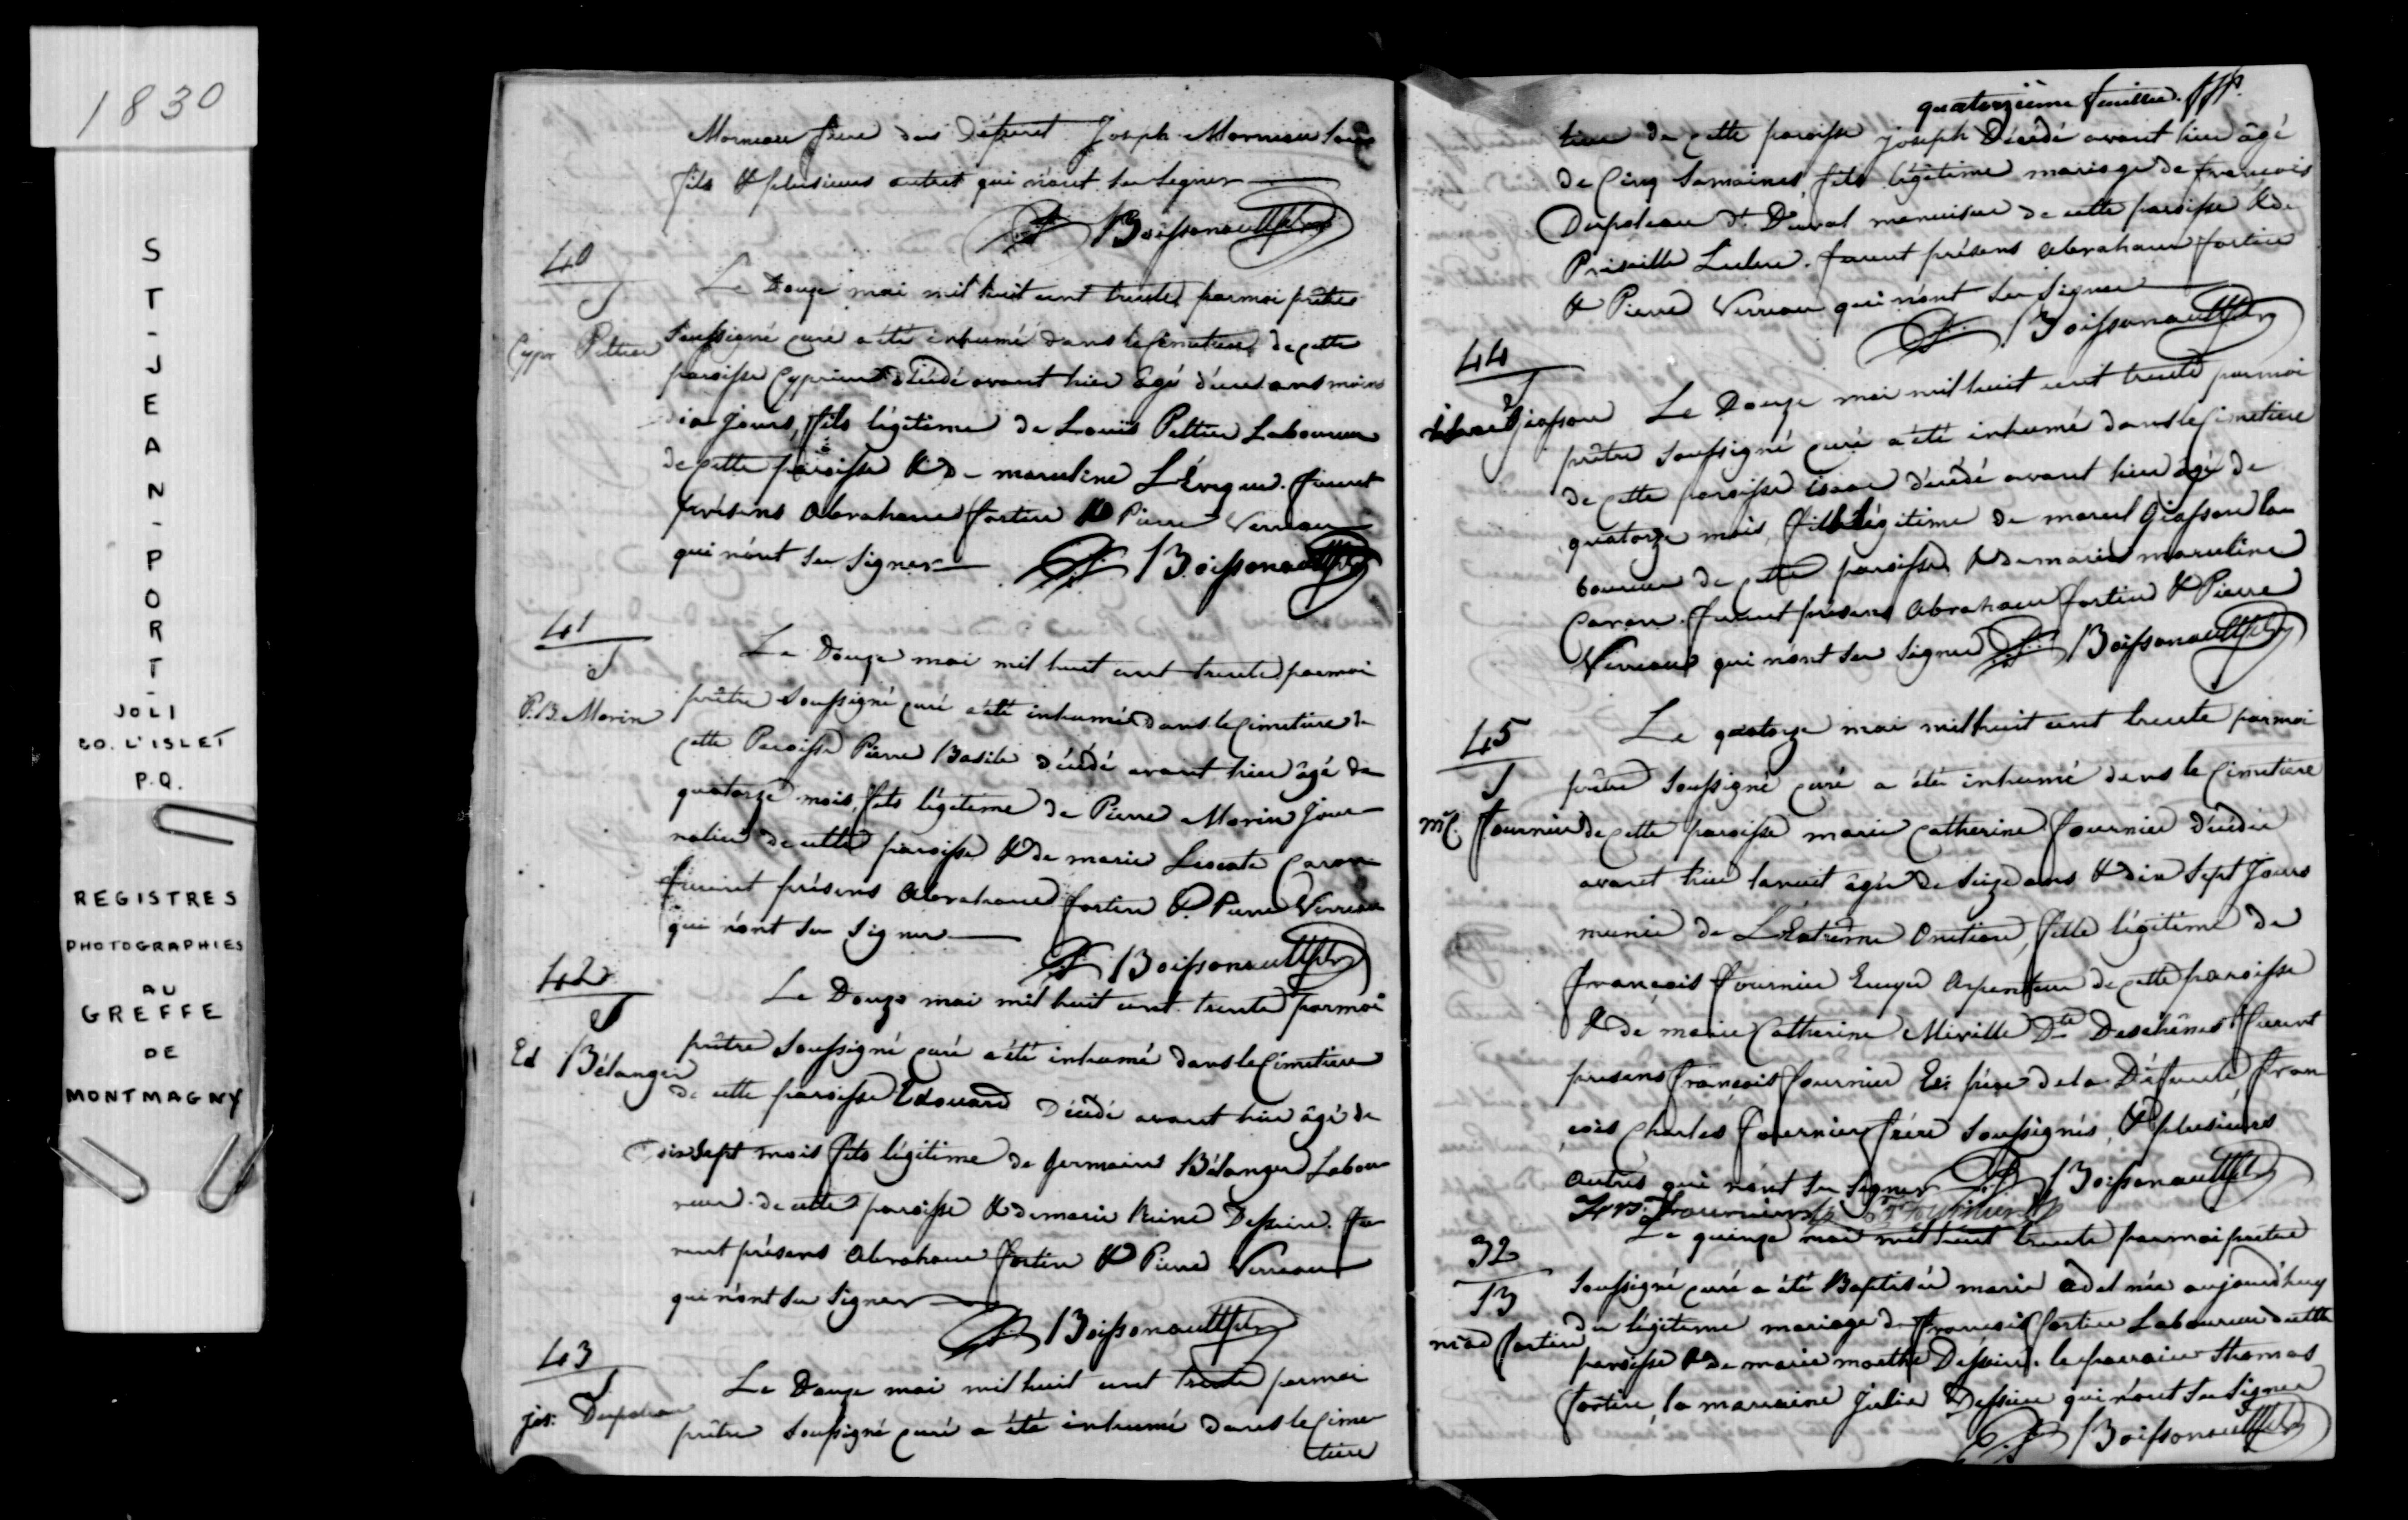 1830
ST-JEAN-PORT-
JOLI
CO. L'ISLET
P.Q.
REGISTRES
PHOTOGRAPHIES
AU
GREFFE
DE
MONTMAGNY
Morneau frère du Défunt Joseph Morneau son
fils & plusieurs autres qui n'ont su signer
Boissonault ptr
40
S
Cypr Peltier
Le Douze mai mil huit cent trente par moi prêtre
soussigné curé a été inhumé dans le Cimetière de cette
paroisse Cyprien décédé avant hier âgé d'un ans moins
dix jours, fils légitime de Louis Peltier Laboureur
de cette paroisse & de marceline L'Evêque. furent
présens Abraham fortin & Pierre Verreau
qui n'ont su signer Boissonault ptr
41
S
P.B. Morin
Le Douze mai mil huit cent trente par moi
prêtre soussigné curé a été inhumé dans le Cimetière de
cette Paroisse Pierre Basile décédé avant hier âgé de
quatorze mois, fils légitime de Pierre Morin jour-
nalier de cette paroisse & de marie Caron
furent présens Abraham fortin & Pierre Verreau
qui n'ont su signer
Boissonault ptr
42
S
Ed Bélanger
Le Douze mai mil huit cent trente par moi
prêtre soussigné curé a été inhumé dans le Cimetière
de cette paroisse Edouard Décédé avant hier âgé de
dix sept mois fils légitime de Germain Bélanger Labou
reur de cette paroisse & de marie Reine Dessein. fu
rent présens Abraham fortin & Pierre Verreau
qui n'ont su signer
Boissonault ptr
43
S
jos: Duspoleau
Le Douze mai mil huit cent trente par moi
prêtre soussigné curé a été inhumé dans le Cime
tière
quatorzième feuillet.
tière de cette paroisse joseph Décédé avant hier âgé
de Cinq semaines, fils légitime mariage de françois
Duspoleau dt Duval menuisier de cette paroisse & de
Priscille furent présens Abraham fortin
& Pierre Verreau qui n'ont su signer
Boissonault ptr
44
S
isaac Giasson
Le Douze mai mil huit cent trente par moi
prêtre soussigné curé a été inhumé dans le Cimetière
de cette paroisse isaac décédé avant hier âgé de
quatorze mois, fils légitime de marcel Giasson la
boureur de cette paroisse & de marie marceline
Caron. furent présens Abraham fortin & Pierre
Verreau qui n'ont su signer Boissonault ptr
45
S
m C. fournier
Le quatorze mai mil huit cent trente par moi
prêtre soussigné curé a été inhumé dans le Cimetière
de cette paroisse marie Catherine fournier décédée
avant hier la nuit âgée de seize ans & dix sept jours
munie de L'Extrême Onction, fille légitime de
françois fournier Ecuyer Arpenteur de cette paroisse
& de marie Catherine Miville Dte Deschênes furent
présens françois fournier Ecr père de la Défunte fran
çois Charles fournier frère soussignés, & plusieurs
autres qui n'ont su signer Boissonault ptr
Frs. Fournier Fournier
32
B
m ad fortin
Le quinze mai mil huit cent trente par moi prêtre
soussigné curé a été Baptisée marie Adel née aujourd'huy
du légitime mariage de françois fortin Laboureur de cette
paroisse & de marie marthe Dessein. le parrain Thomas
fortin, la marraine Julie Dessein qui n'ont su signer
Boissonault ptr